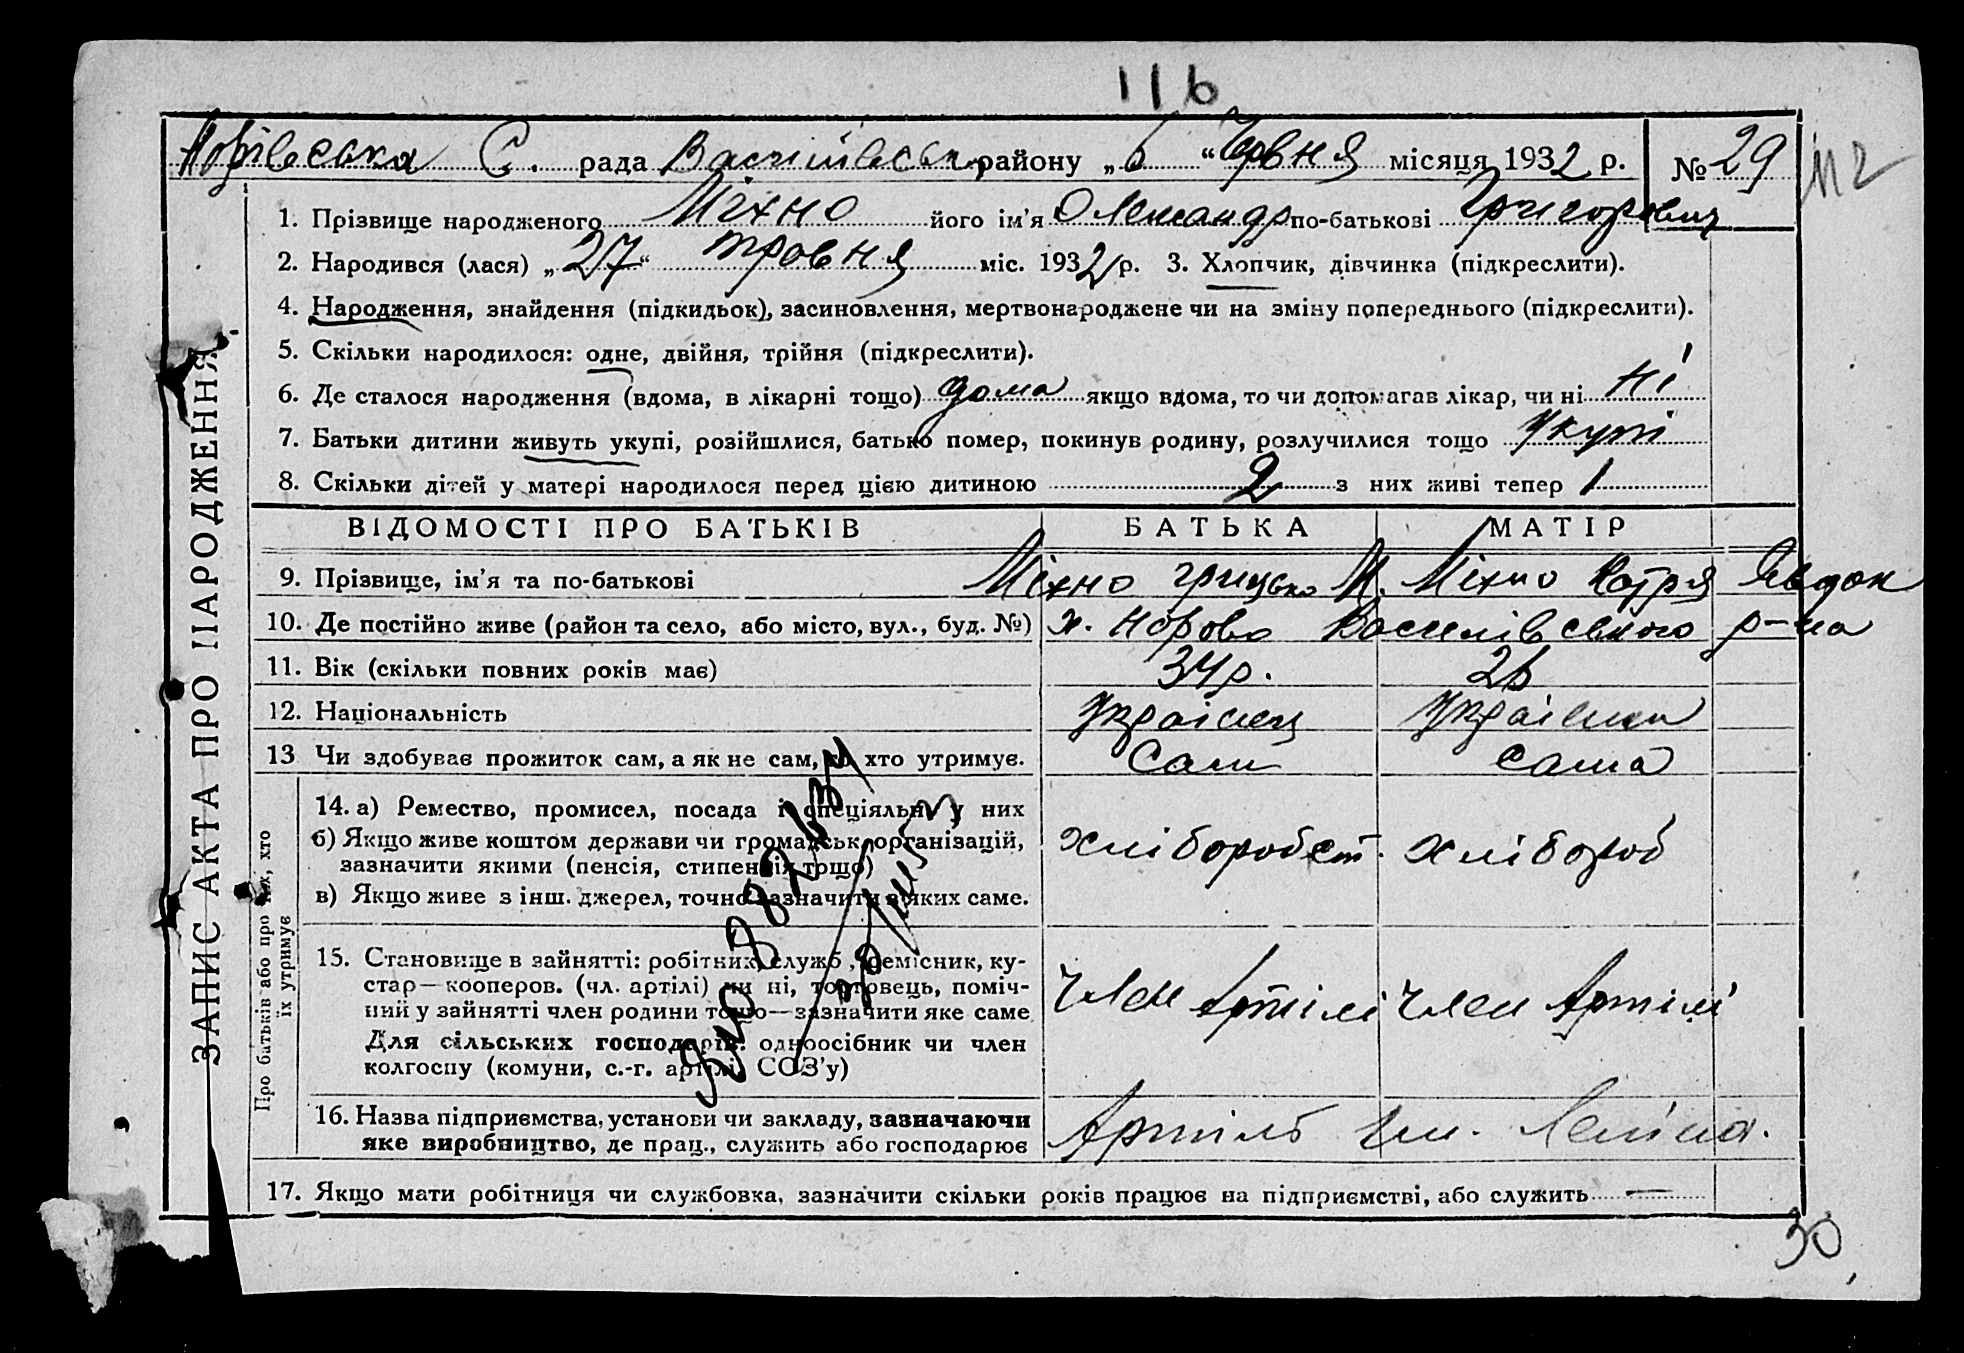 116
С. рада Василівськ. району „6“ Червня місяця 1932 р. № 29
112
ЗАПИС АКТА ПРО НАРОДЖЕННЯ
1. Прізвище народженого Міхно його ім’я Олександр по-батькові Григорович
2. Народився (лася) „27“ травня міс. 1932 р. 3. Хлопчик, дівчинка (підкреслити).
4. Народження, знайдення (підкидьок), засиновлення, мертвонароджене чи на зміну попереднього (підкреслити).
5. Скільки народилося: одне, двійня, трійня (підкреслити).
6. Де сталося народження (вдома, в лікарні тощо) дома якщо вдома, то чи допомагав лікар, чи ні ні
7. Батьки дитини живуть укупі, розійшлися, батько помер, покинув родину, розлучилися тощо укупі
8. Скільки дітей у матері народилося перед цією дитиною 2 з них живі тепер 1
ВІДОМОСТІ ПРО БАТЬКІВ БАТЬКА МАТІР
9. Прізвище, ім’я та по-батькові Міхно Грицько М. Міхно Катря Явдок
10. Де постійно живе (район та село, або місто, вул., буд. №) х. Василівського р-на
11. Вік (скільки повних років має) 34 р. 26
12. Національність Українец Українка
13 Чи здобуває прожиток сам, а як не сам, то хто утримує. Сам сама
Про батьків або про них, хто їх утримує
14. а) Ремество, промисел, посада і спеціяльн. у них
б) Якщо живе коштом держави чи громадськ. організацій,
зазначити якими (пенсія, стипендія тощо)
в) Якщо живе з інш. джерел, точно зазначити з яких саме.
хлібороб хлібороб
15. Становище в зайнятті: робітник, служб., ремісник, ку-
стар—кооперов. (чл. артілі) чи ні, торговець, поміч-
ний у зайнятті член родини тощо—зазначити яке саме
Для сільських господарів: одноосібник чи член
колгоспу (комуни, с.-г. артілі, СОЗ’у)
член Артілі член Артілі
16. Назва підприємства, установи чи закладу, зазначаючи
яке виробництво, де прац., служить або господарює
Артіль им. Леніна.
17. Якщо мати робітниця чи службовка, зазначити скільки років працює на підприємстві, або служить —
30